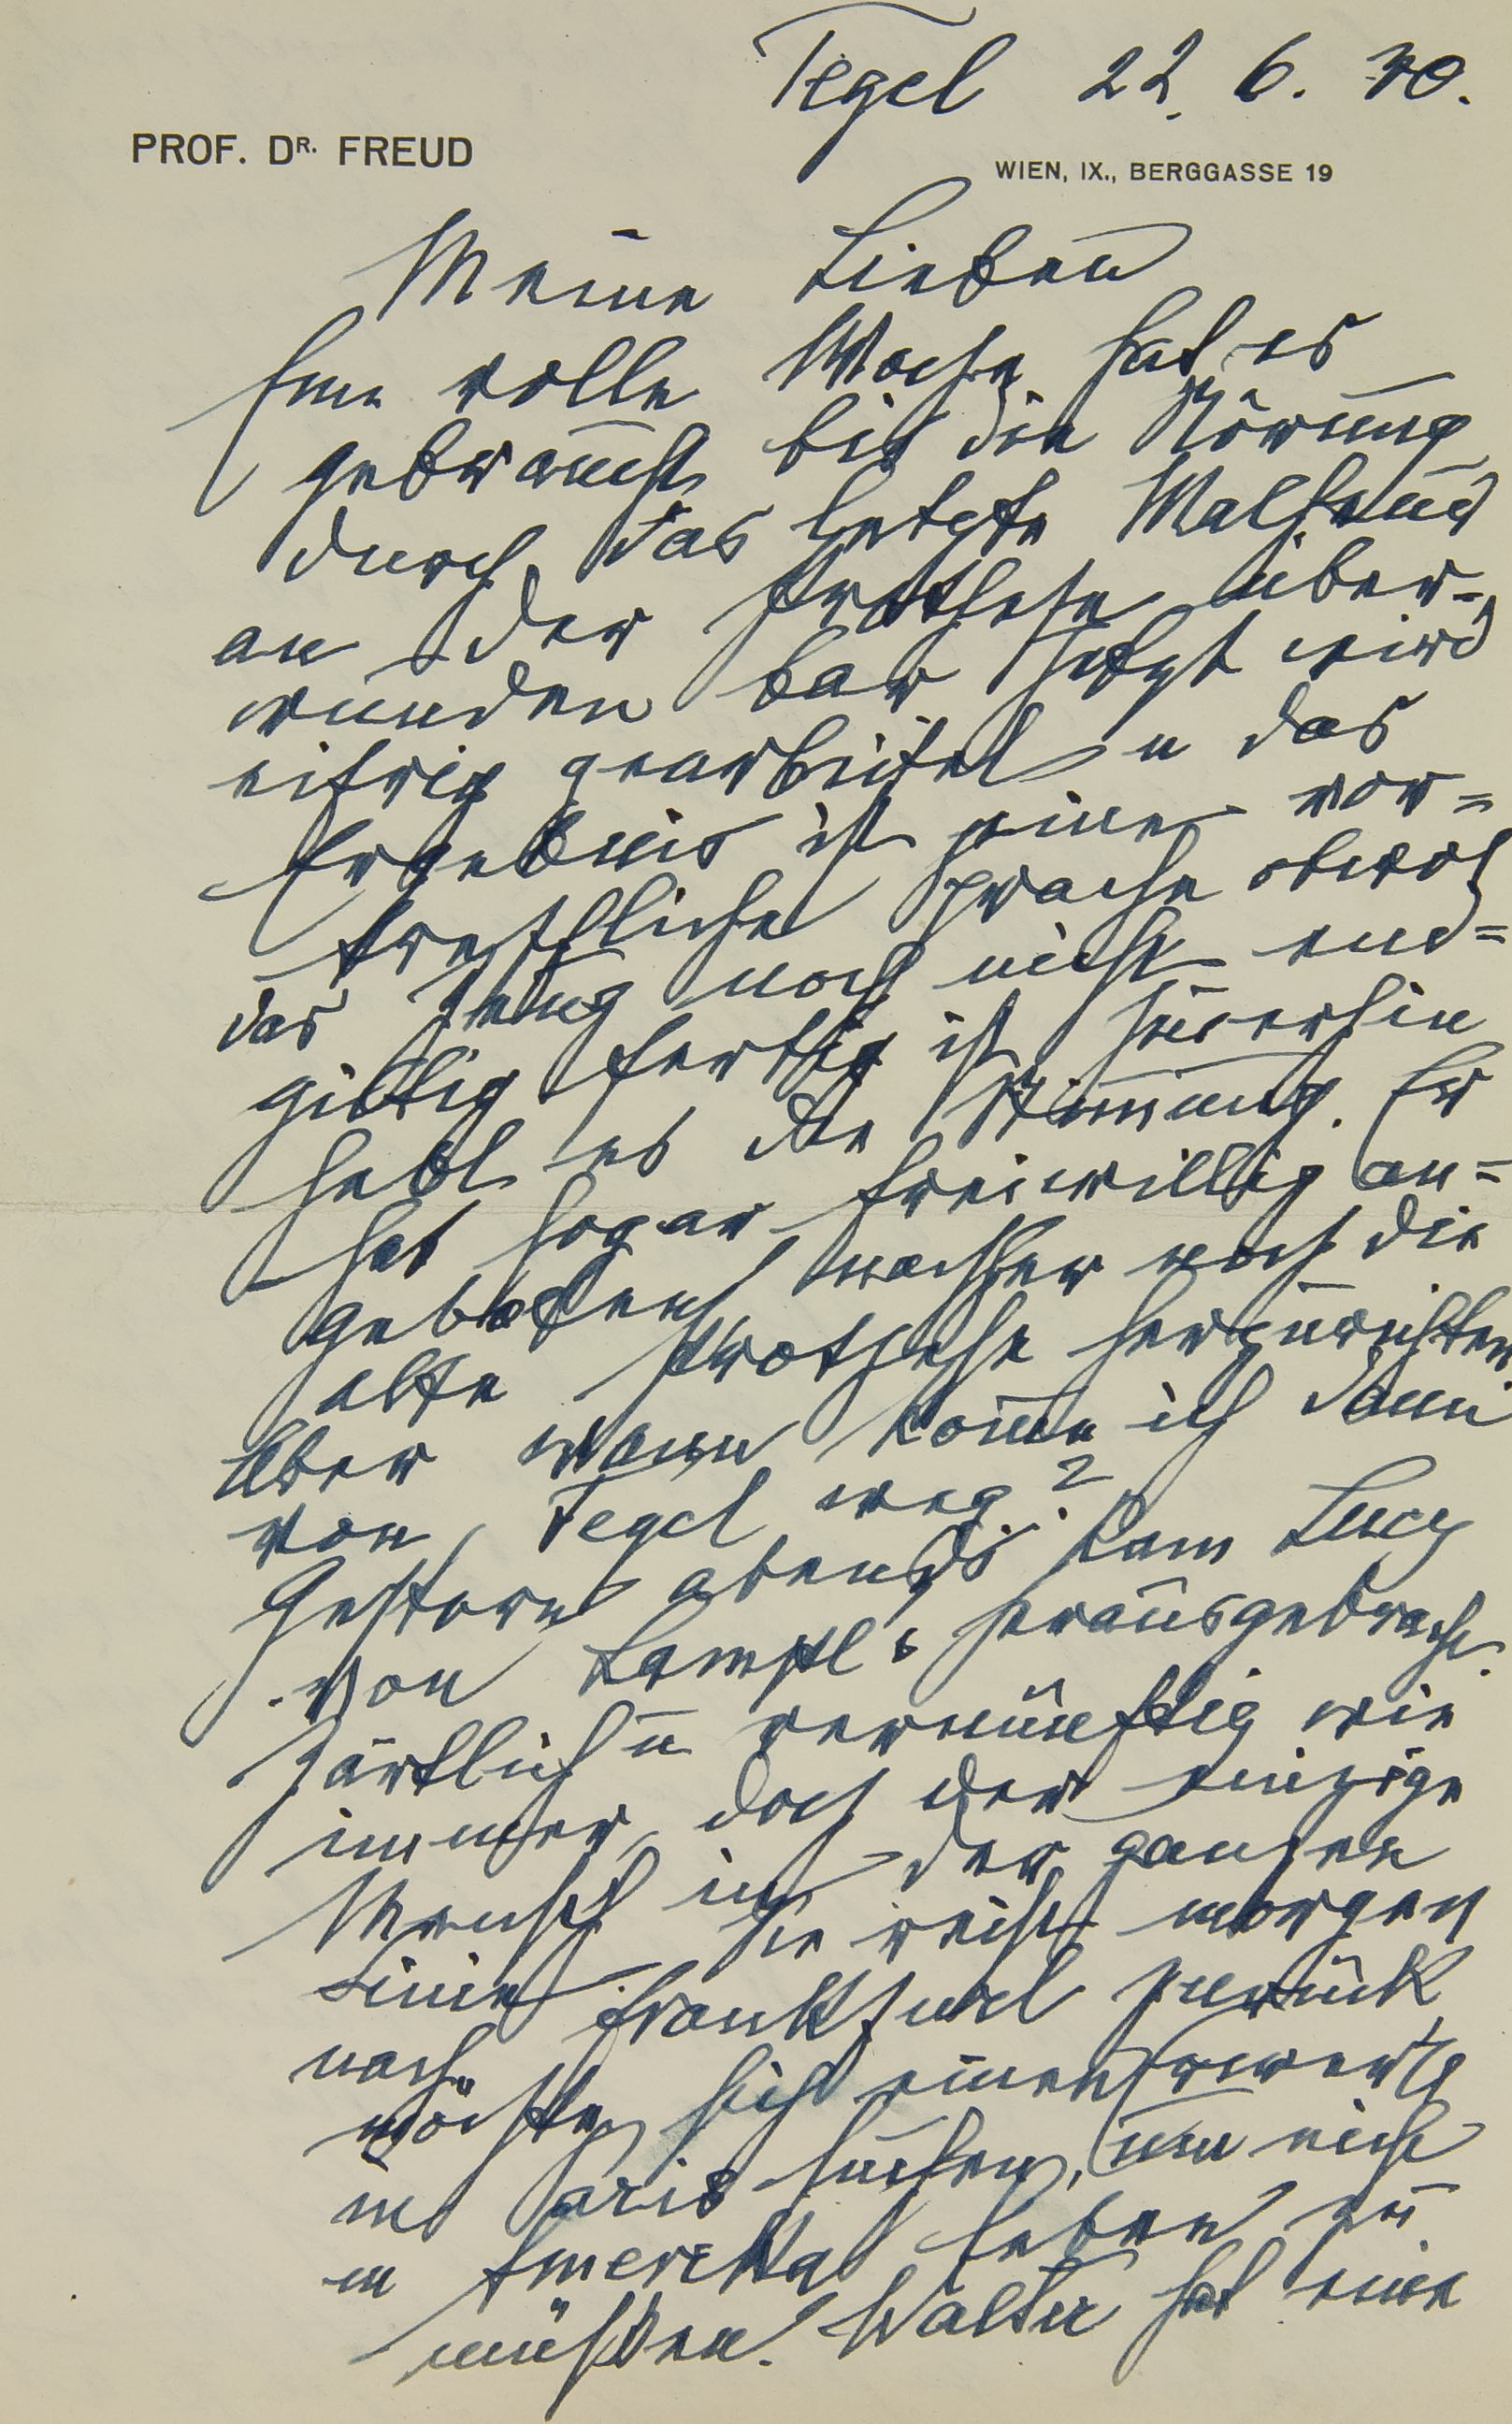 Tegel 22. 6. 30.
PROF. DR. FREUD
WIEN, IX., BERGGASSE 19
Meine Lieben
Eine volle Woche hat es
gebraucht bis die Störung
durch das letzte
an der Prothese über-
wunden war. Jetzt wird
eifrig gearbeitet u das
Ergebnis ist eine vor-
treffliche Sprache obwol
das Zeug noch nicht end-
giltig fertig ist. Immerhin
hebt es die Stimmung. Er
hat sogar freiwillig an-
geboten, nachher noch die
alte Prothese herzurichten
Aber wann komme ich dann
von Tegel weg?
Gestern abends kam Lucy
von Lampls herausgebracht.
Zärtlich u vernünftig wie
immer, doch der einzige
Mensch in der ganzen
Linie. Sie reist morgen
nach Frankfurt zurück
möchte sich einen Erwerb
in Paris suchen, um nicht
in Amerika leben zu
müssen. Walter hat eine